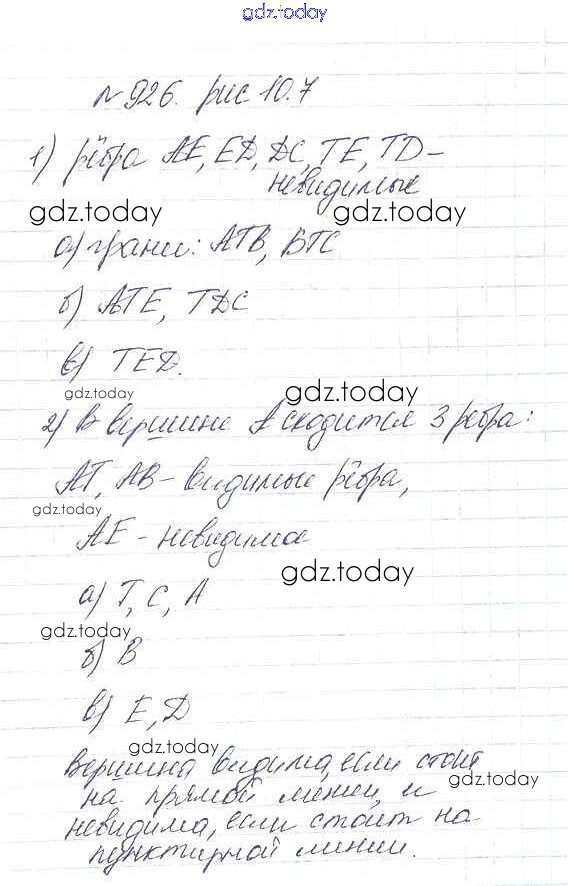 gdz.today
№926. рис 10.7
1) рёбра AE, ED, DC, TE, TD –
невидимые
gdz.today gdz.today
а) грани: ATB, BTC
б) ATE, TDC
в) TED.
gdz.today gdz.today
2) В вершине A сходится 3 ребра:
AT, AB – видимые рёбра,
gdz.today
AE – невидимое
gdz.today
а) T, C, A
gdz.today
б) B
в) E, D
gdz.today
Вершина видима, если стоит
gdz.today
на прямой линии, и
невидима, если стоит на
пунктирной линии.